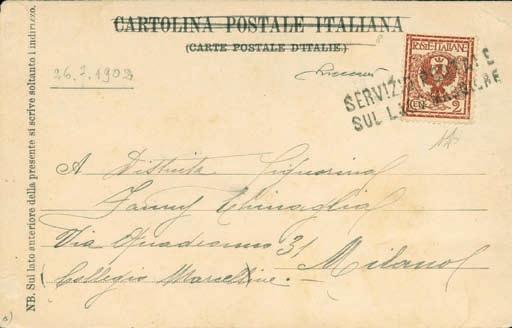 CARTOLINA POSTALE ITALIANA
(CARTE POSTALE D'ITALIE.)
26.7.1902
POSTE ITALIANE
CEN. 2
SERVIZIO POSTALE
SUL LAGO MAGGIORE
A Distinta Signorina
Fanny Chinaglia
Via Quadronno 31
Milano
(Collegio Marcelline.
NB. Sul lato anteriore della presente si scrive soltanto l'indirizzo.